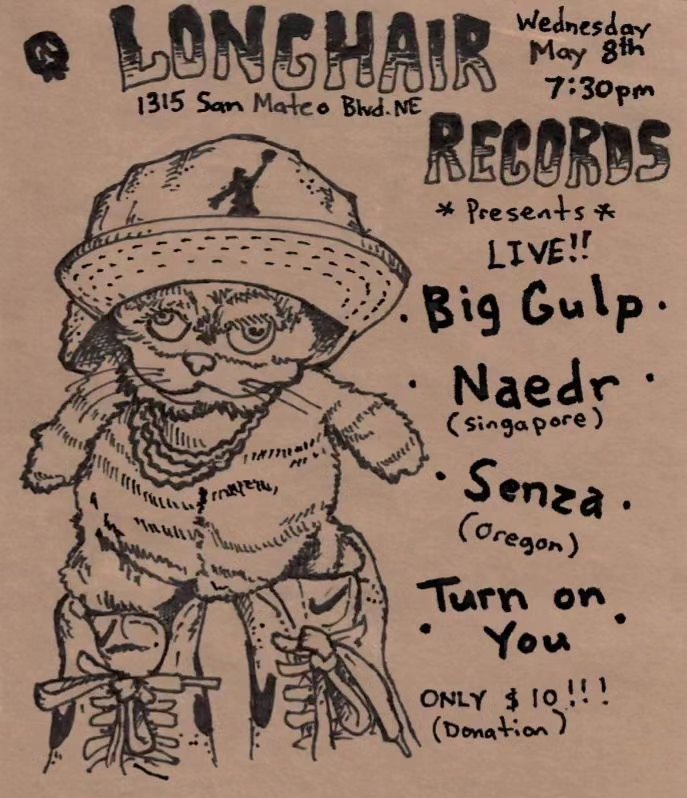 @ LONGHAIR
1315 San Mateo Blvd. NE
Wednesday
May 8th
7:30pm
RECORDS
* Presents *
LIVE!!
. Big Gulp .
. Naedr .
(singapore)
. Senza .
(Oregon)
Turn on
. You .
ONLY $10!!!
(Donation)